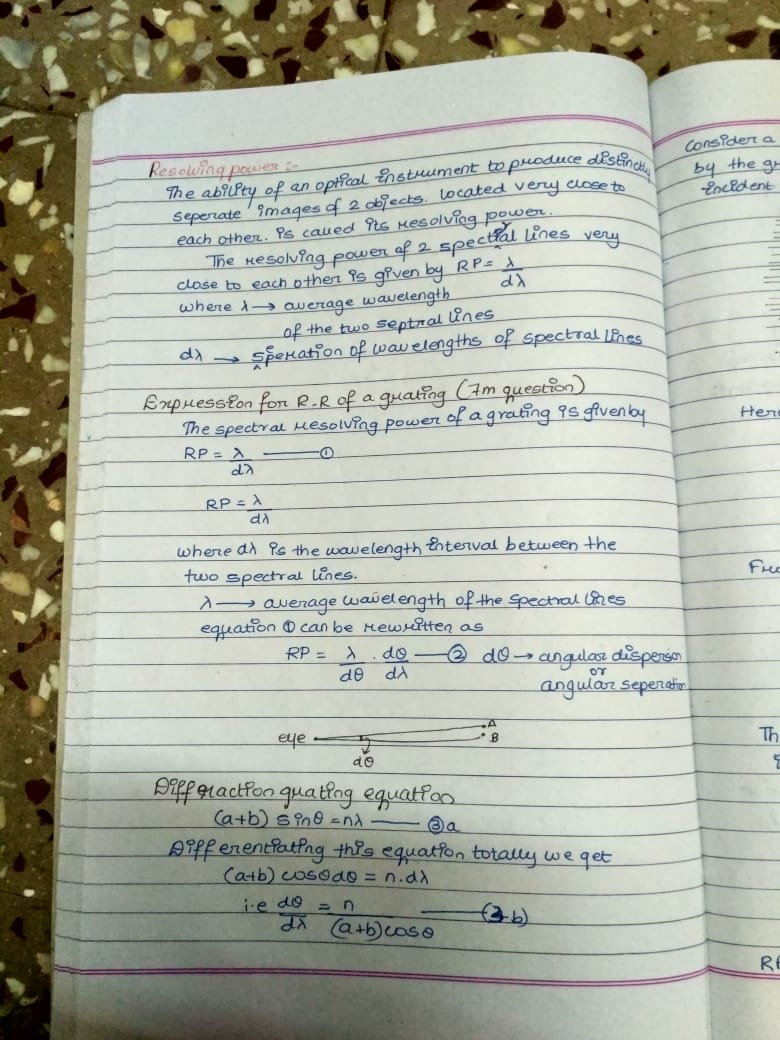 Resolving power :-
The ability of an optical instrument to produce distinctly
seperate images of 2 objects. located very close to
each other. is called its resolving power.
The resolving power of 2 spectral lines very
close to each other is given by RP = λ/dλ
where λ → average wavelength
of the two septral lines
dλ → seperation of wavelengths of spectral lines
Expression for R.R of a grating (7m question)
The spectral resolving power of a grating is given by
RP = λ/dλ —— ①
RP = λ/dλ
where dλ is the wavelength interval between the
two spectral lines.
λ → average wavelength of the spectral lines
equation ① can be rewritten as
RP = λ/dθ . dθ/dλ —— ② dθ → angular dispersion
or
angular seperation
A
eye
B
dθ
Diffraction grating equation
(a+b) sinθ = nλ —— ③a
Differentiating this equation totally we get
(a+b) cosθdθ = n.dλ
i.e dθ/dλ = n/(a+b)cosθ —— (3-b)
Consider a
by the gr
incident
Here
Th